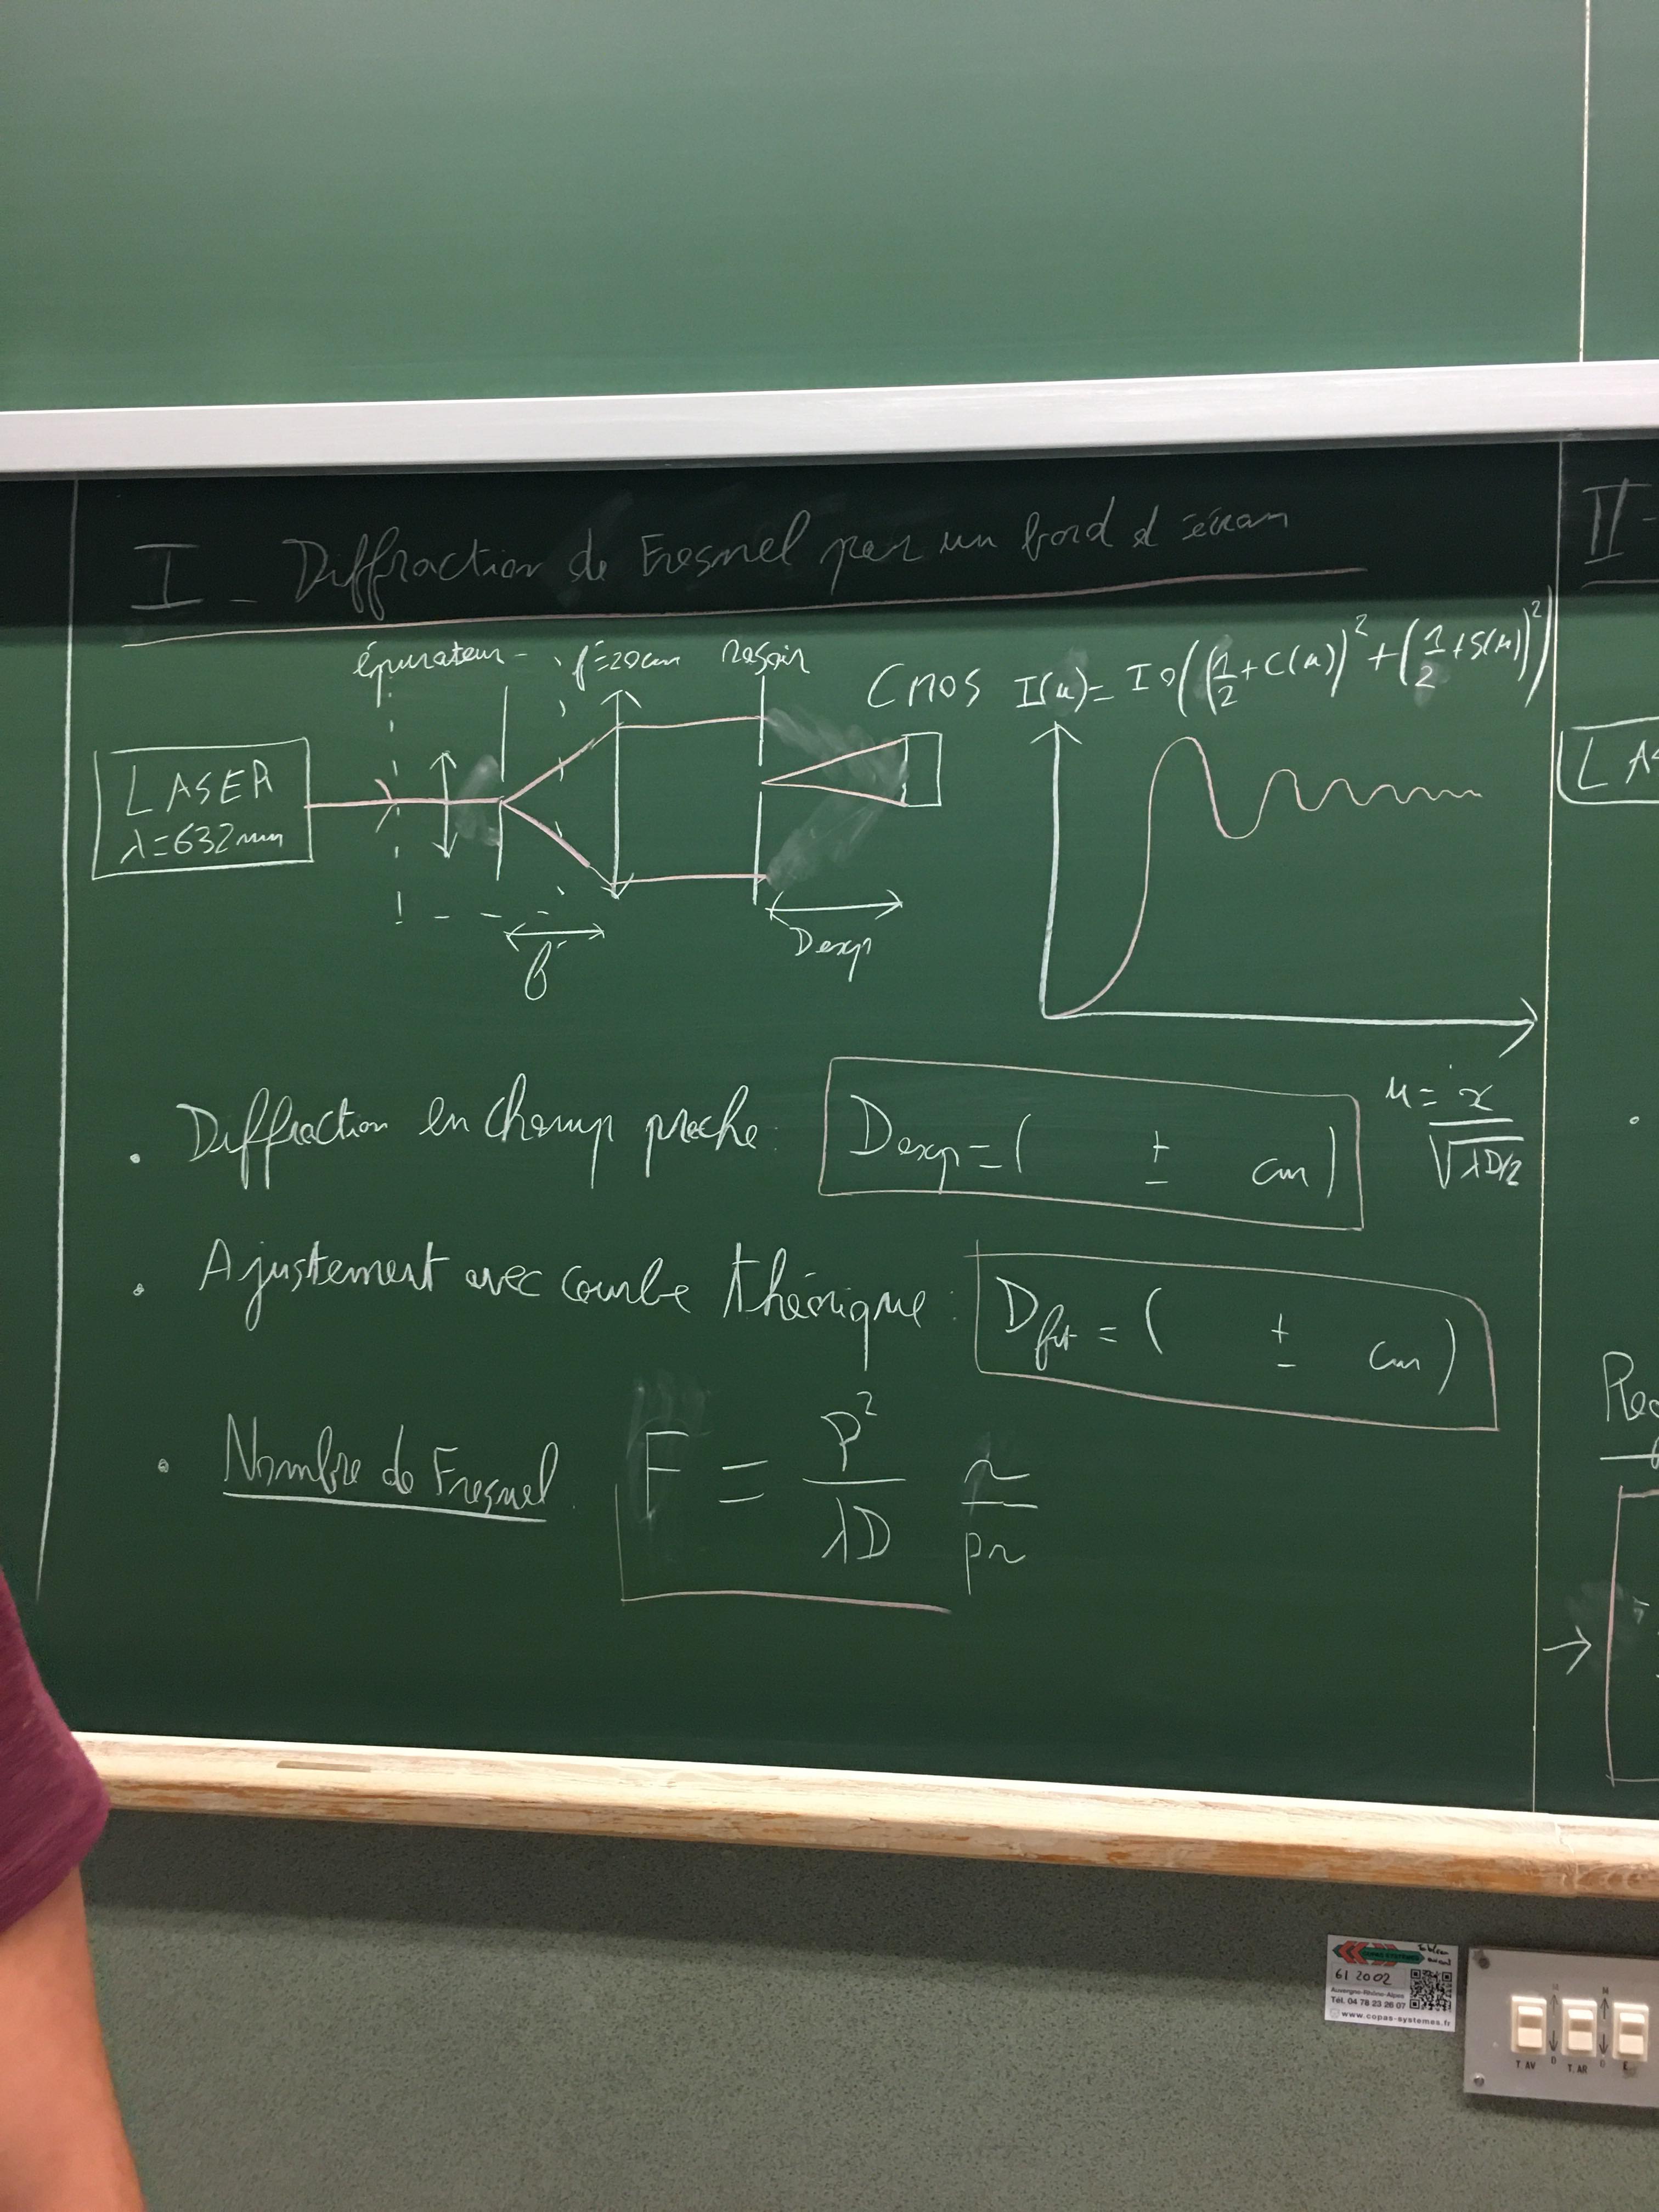 I - Diffraction de Fresnel par un bord d'écran
II -
épurateur
f'=20cm
rasoir
CMOS
I(u) = I0((1/2+C(u))²+(1/2+S(u))²)
LASER
λ=632nm
LAS
f'
Dexp
u = x/√(λD/2)
. Diffraction en champ proche : Dexp = ( ± cm)
. Ajustement avec courbe théorique : Dfit = ( ± cm)
. Nombre de Fresnel F = p²/λD
COPAS SYSTEMES
61 2002
Auvergne-Rhône-Alpes
Tél. 04 78 23 26 07
www.copas-systemes.fr
T.AV D T.AR D E